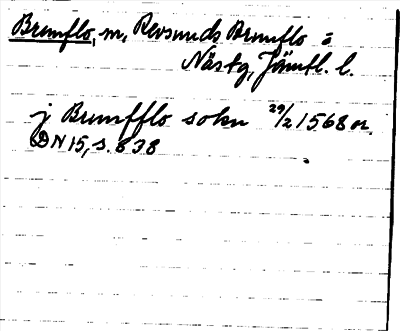 Brunflo, m, Revsunds Brunflo o
Näskg, Jämtl. l.
j Brunfflo sokn 29/2 1568 or.
DN 15, s. 838